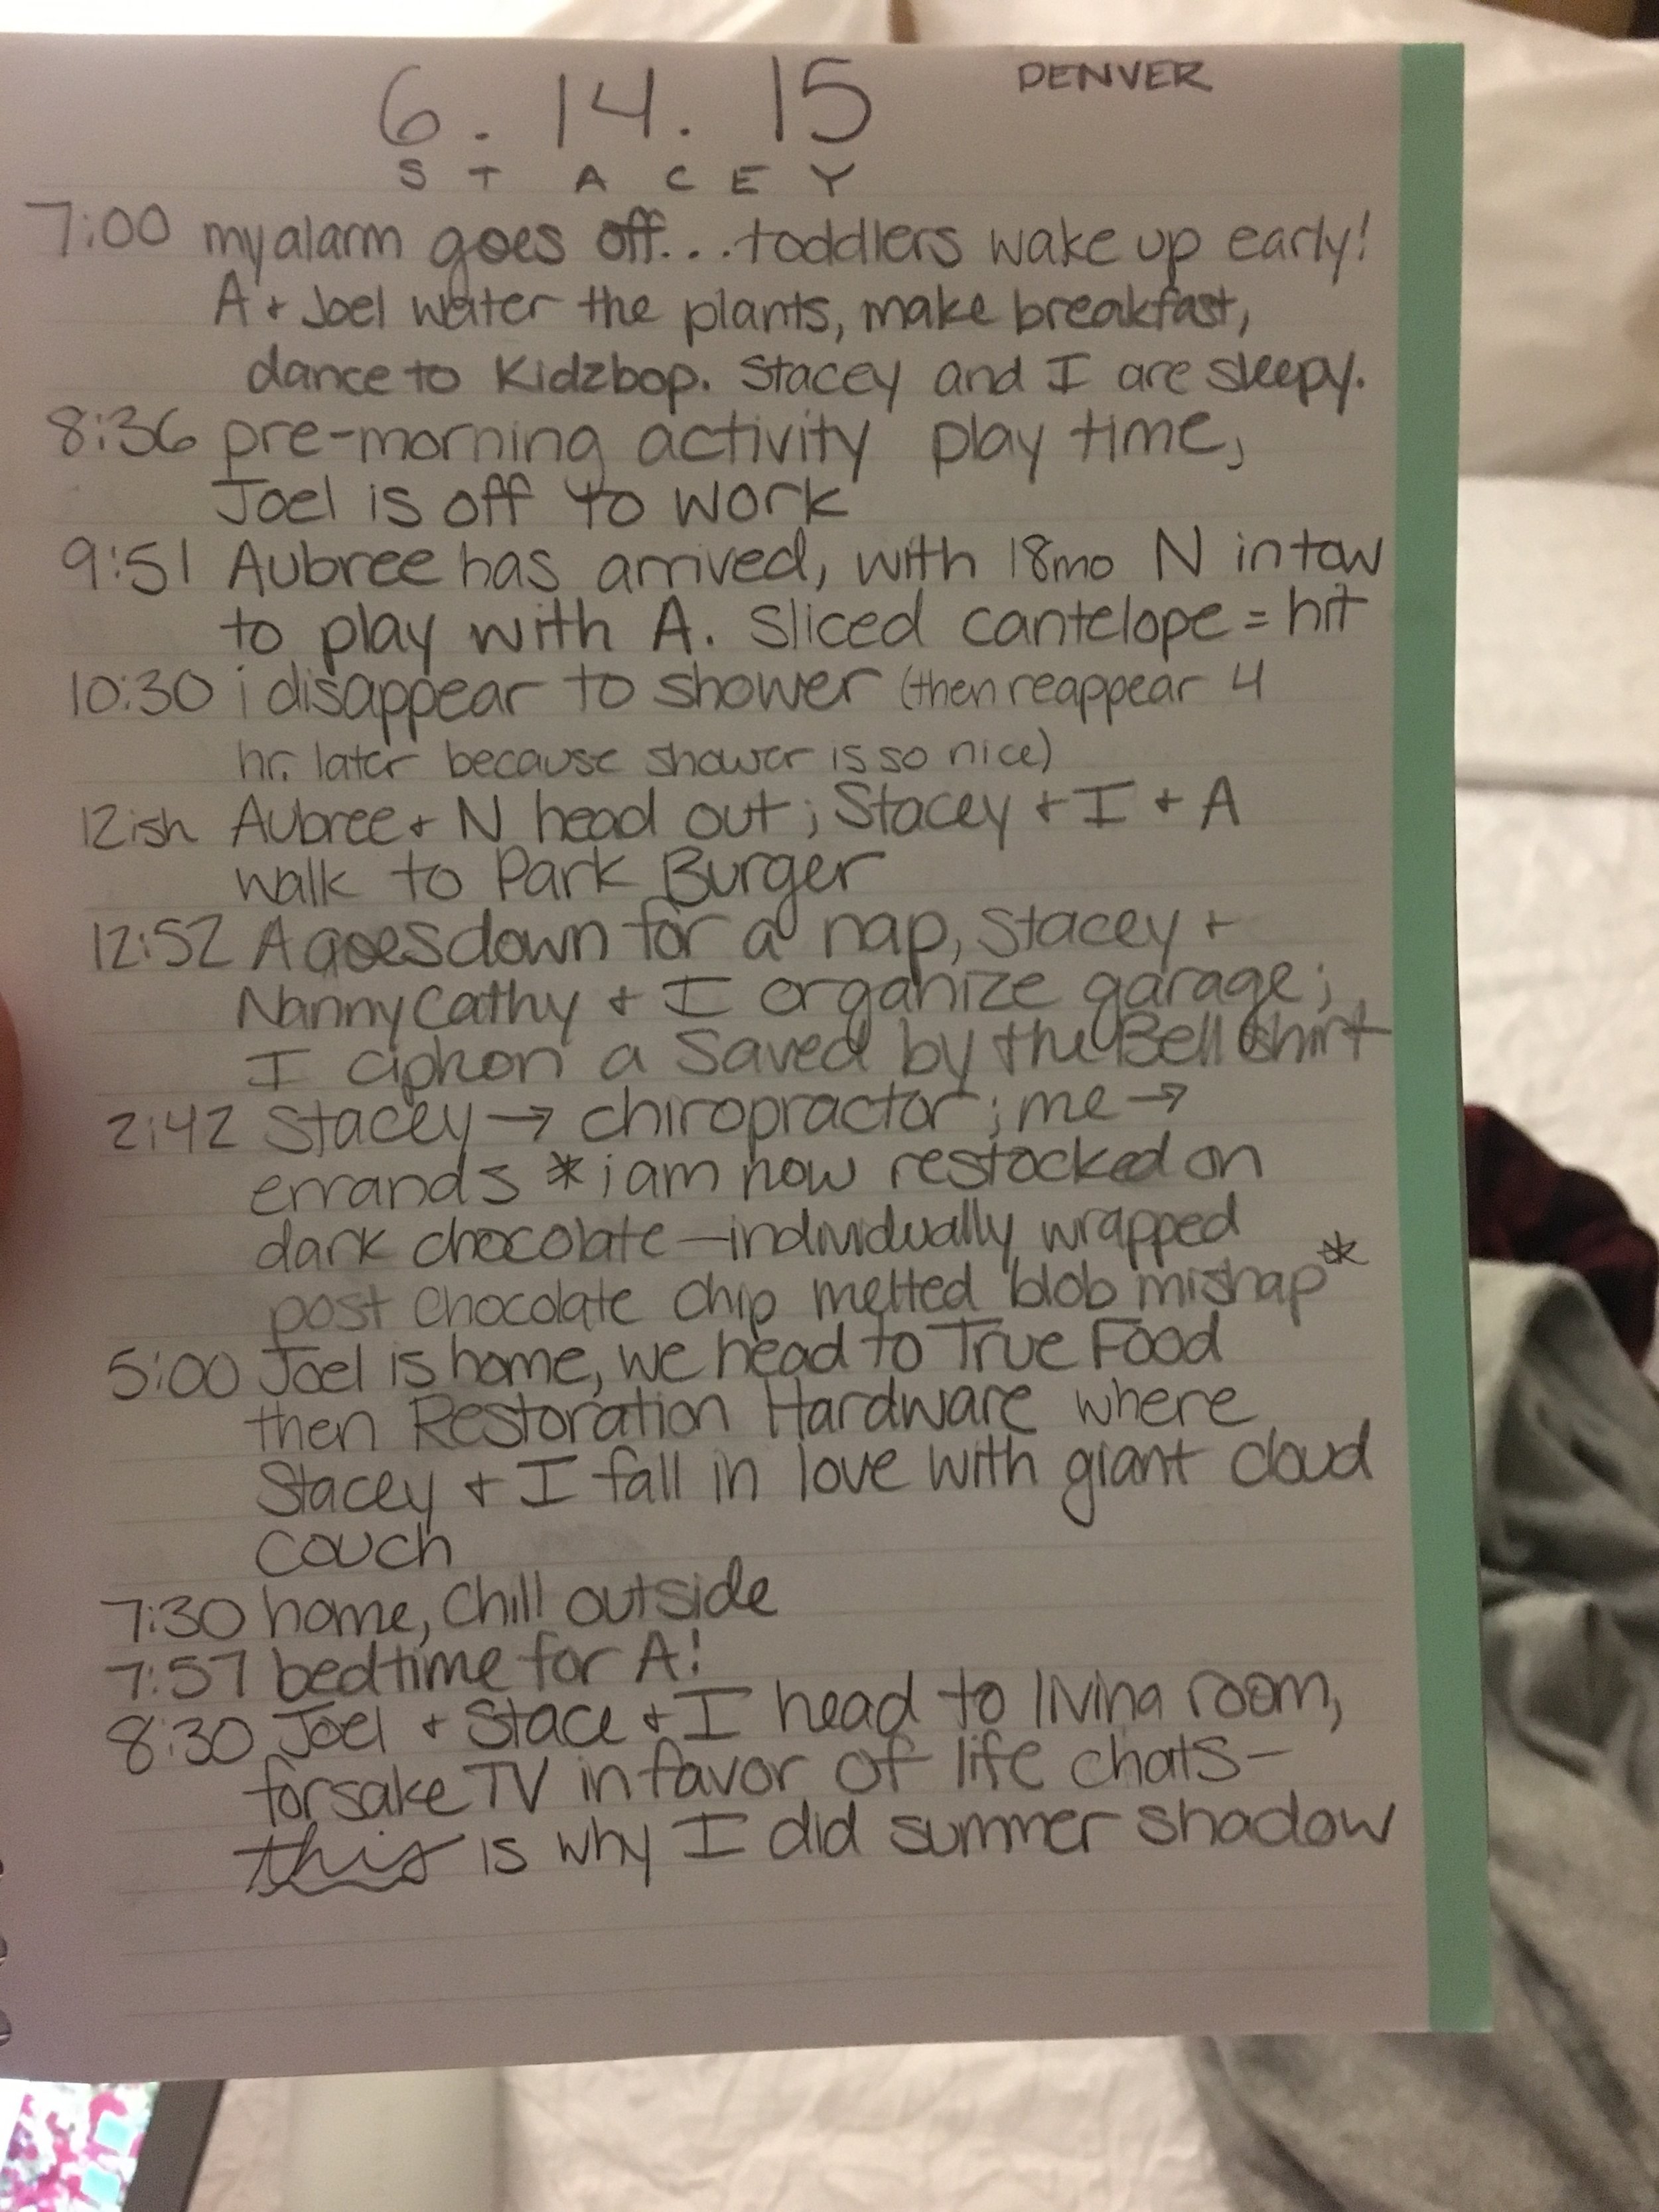 6.14.15 DENVER
STACEY
7:00 my alarm goes off... toddlers wake up early!
A + Joel water the plants, make breakfast,
dance to Kidzbop. Stacey and I are sleepy.
8:36 pre-morning activity play time,
Joel is off to work
9:51 Aubree has arrived, with 18mo N in tow
to play with A. Sliced cantelope = hit
10:30 i disappear to shower (then reappear 4
hr. later because shower is so nice)
12ish Aubree + N head out; Stacey + I + A
walk to Park Burger
12:52 A goes down for a nap, Stacey +
Nanny Cathy + I organize garage;
I ciphon a Saved by the Bell shirt
2:42 Stacey → chiropractor; me →
errands * i am now restocked on
dark chocolate — individually wrapped
post chocolate chip melted blob mishap*
5:00 Joel is home, we head to True Food
then Restoration Hardware where
Stacey + I fall in love with giant cloud
couch
7:30 home, Chill outside
7:57 bedtime for A!
8:30 Joel + Stace + I head to living room,
forsake TV in favor of life chats—
this is why I did summer shadow